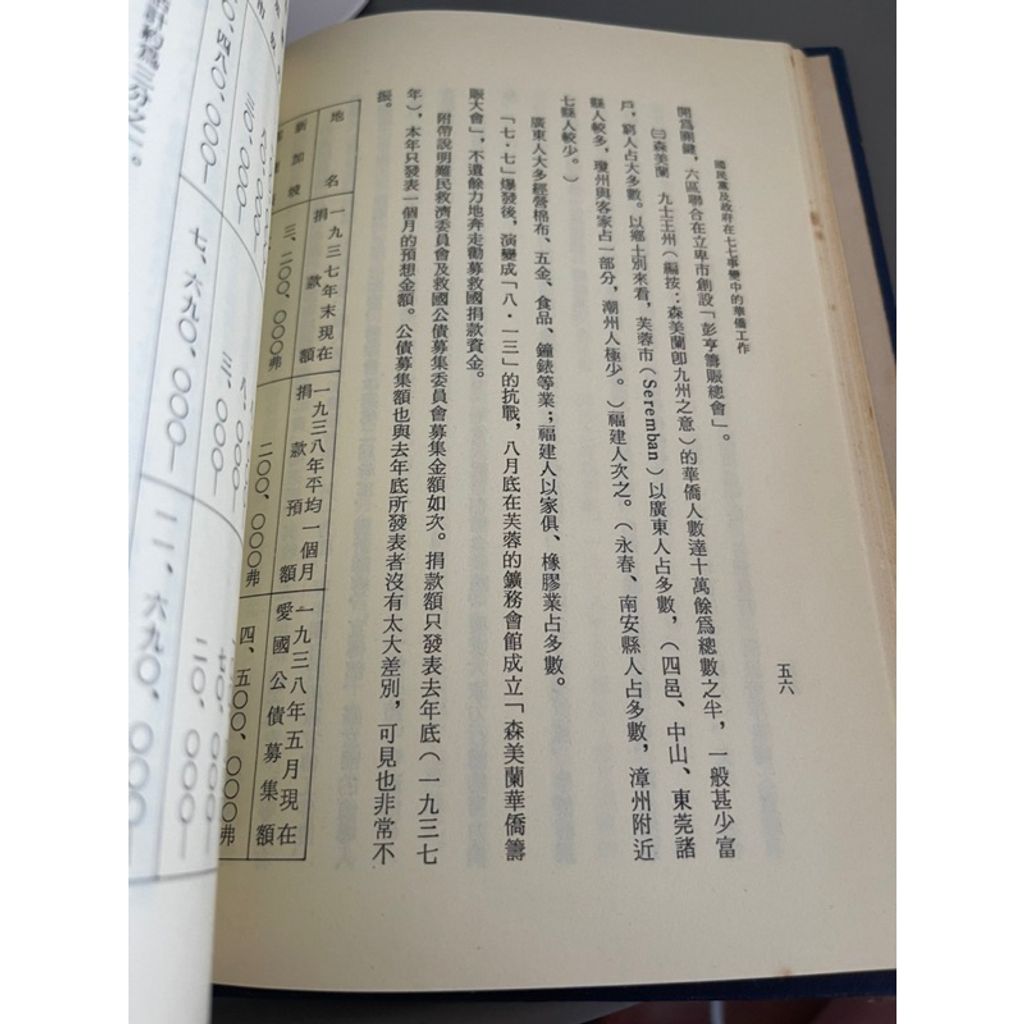 國民黨及政府在七七事變中的華僑工作
五六
開為關鍵，六區聯合在立卑市創設「彭亨籌賑總會」。
㈢森美蘭　九士王州（編按：森美蘭卽九州之意）的華僑人數達十萬餘為總數之半，一般甚少富
戶，窮人占大多數。以鄉土別來看，芙蓉市（Seremban）以廣東人占多數，（四邑、中山、東莞諸
縣人較多，瓊州與客家占一部分，潮州人極少。）福建人次之。（永春、南安縣人占多數，漳州附近
七縣人較少。）
廣東人大多經營棉布、五金、食品、鐘錶等業；福建人以家俱、橡膠業占多數。
「七·七」爆發後，演變成「八·一三」的抗戰，八月底在芙蓉的鑛務會館成立「森美蘭華僑籌
賑大會」，不遺餘力地奔走勸募救國捐款資金。
附帶說明難民救濟委員會及救國公債募集委員會募集金額如次。捐款額只發表去年底（一九三七
年），本年只發表一個月的預想金額。公債募集額也與去年底所發表者沒有太大差別，可見也非常不
振。
地名
一九三七年末現在捐款額
一九三八年平均一個月捐款預額
一九三八年五月現在愛國公債募集額
新加坡
三、二〇〇、〇〇〇弗
二〇〇、〇〇〇弗
四、五〇〇、〇〇〇弗
七、六九〇、〇〇〇
一一、六九〇、〇〇〇